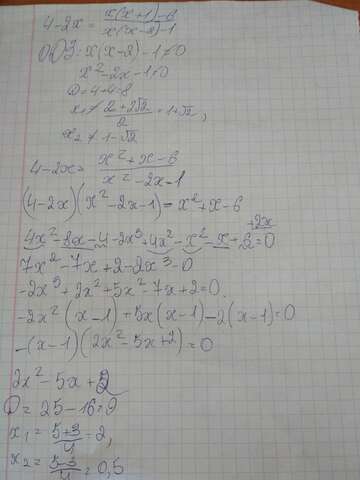 4-2x = x(x+1)-6 / x(x-2)-1
ОДЗ: x(x-2)-1≠0
x²-2x-1≠0
D=4+4=8
x₁ ≠ 2+2√2 / 2 = 1+√2,
x₂ ≠ 1-√2
4-2x = x²+x-6 / x²-2x-1
(4-2x)(x²-2x-1)=x²+x-6
+2x
4x²-8x-4-2x³+4x²-x²-x+6=0
7x²-7x+2-2x³=0
-2x³+2x²+5x²-7x+2=0
-2x²(x-1)+5x(x-1)-2(x-1)=0
-(x-1)(2x²-5x+2)=0
2x²-5x+2
D=25-16=9
x₁ = 5+3 / 4 = 2,
x₂ = 5-3 / 4 = 0,5